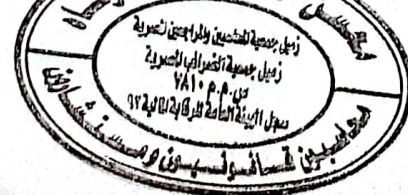 زميل جمعية المحاسبين والمراجعين المصرية
زميل جمعية الضرائب المصرية
س.م.م ٧٨١٠
سجل الهيئة العامة للرقابة المالية ٩٢
محاسبون قانونيون ومستشارون